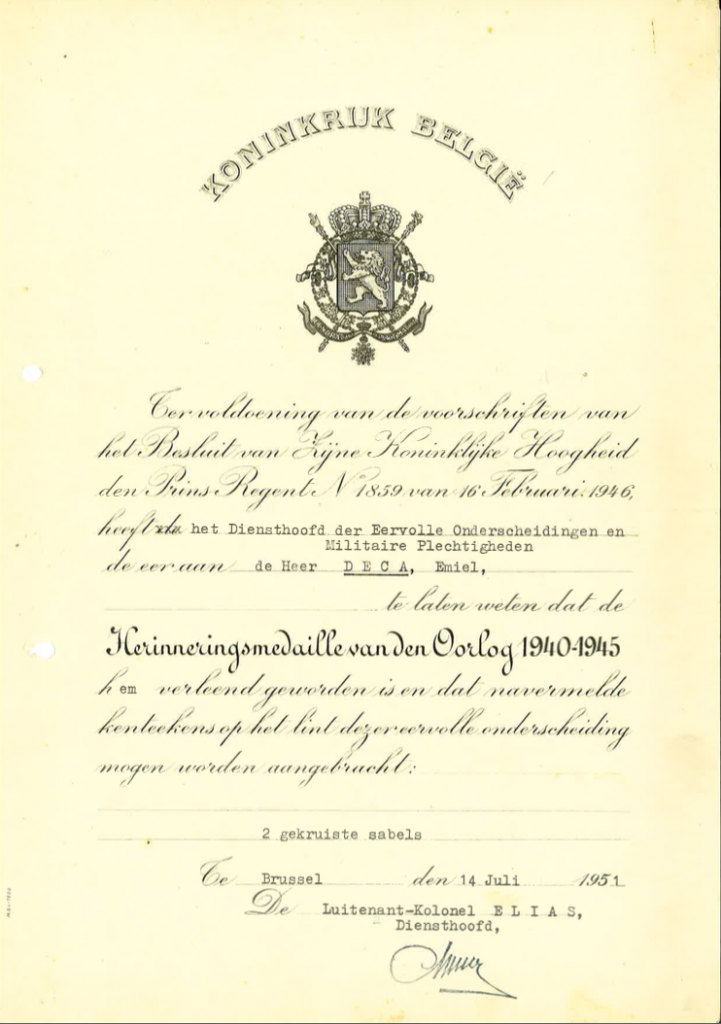 KONINKRIJK BELGIË
Ter voldoening van de voorschriften van
het Besluit van Zijne Koninklijke Hoogheid
den Prins-Regent N° 1859 van 16 Februari 1946,
heeft xxx het Diensthoofd der Eervolle Onderscheidingen en
Militaire Plechtigheden
de eer aan de Heer D E C A, Emiel,
te laten weten dat de
Herinneringsmedaille van den Oorlog 1940-1945
hem verleend geworden is en dat navermelde
kenteekens op het lint dezer eervolle onderscheiding
mogen worden aangebracht:
2 gekruiste sabels
Te Brussel den 14 Juli 1951
De Luitenant-Kolonel E L I A S,
Diensthoofd,